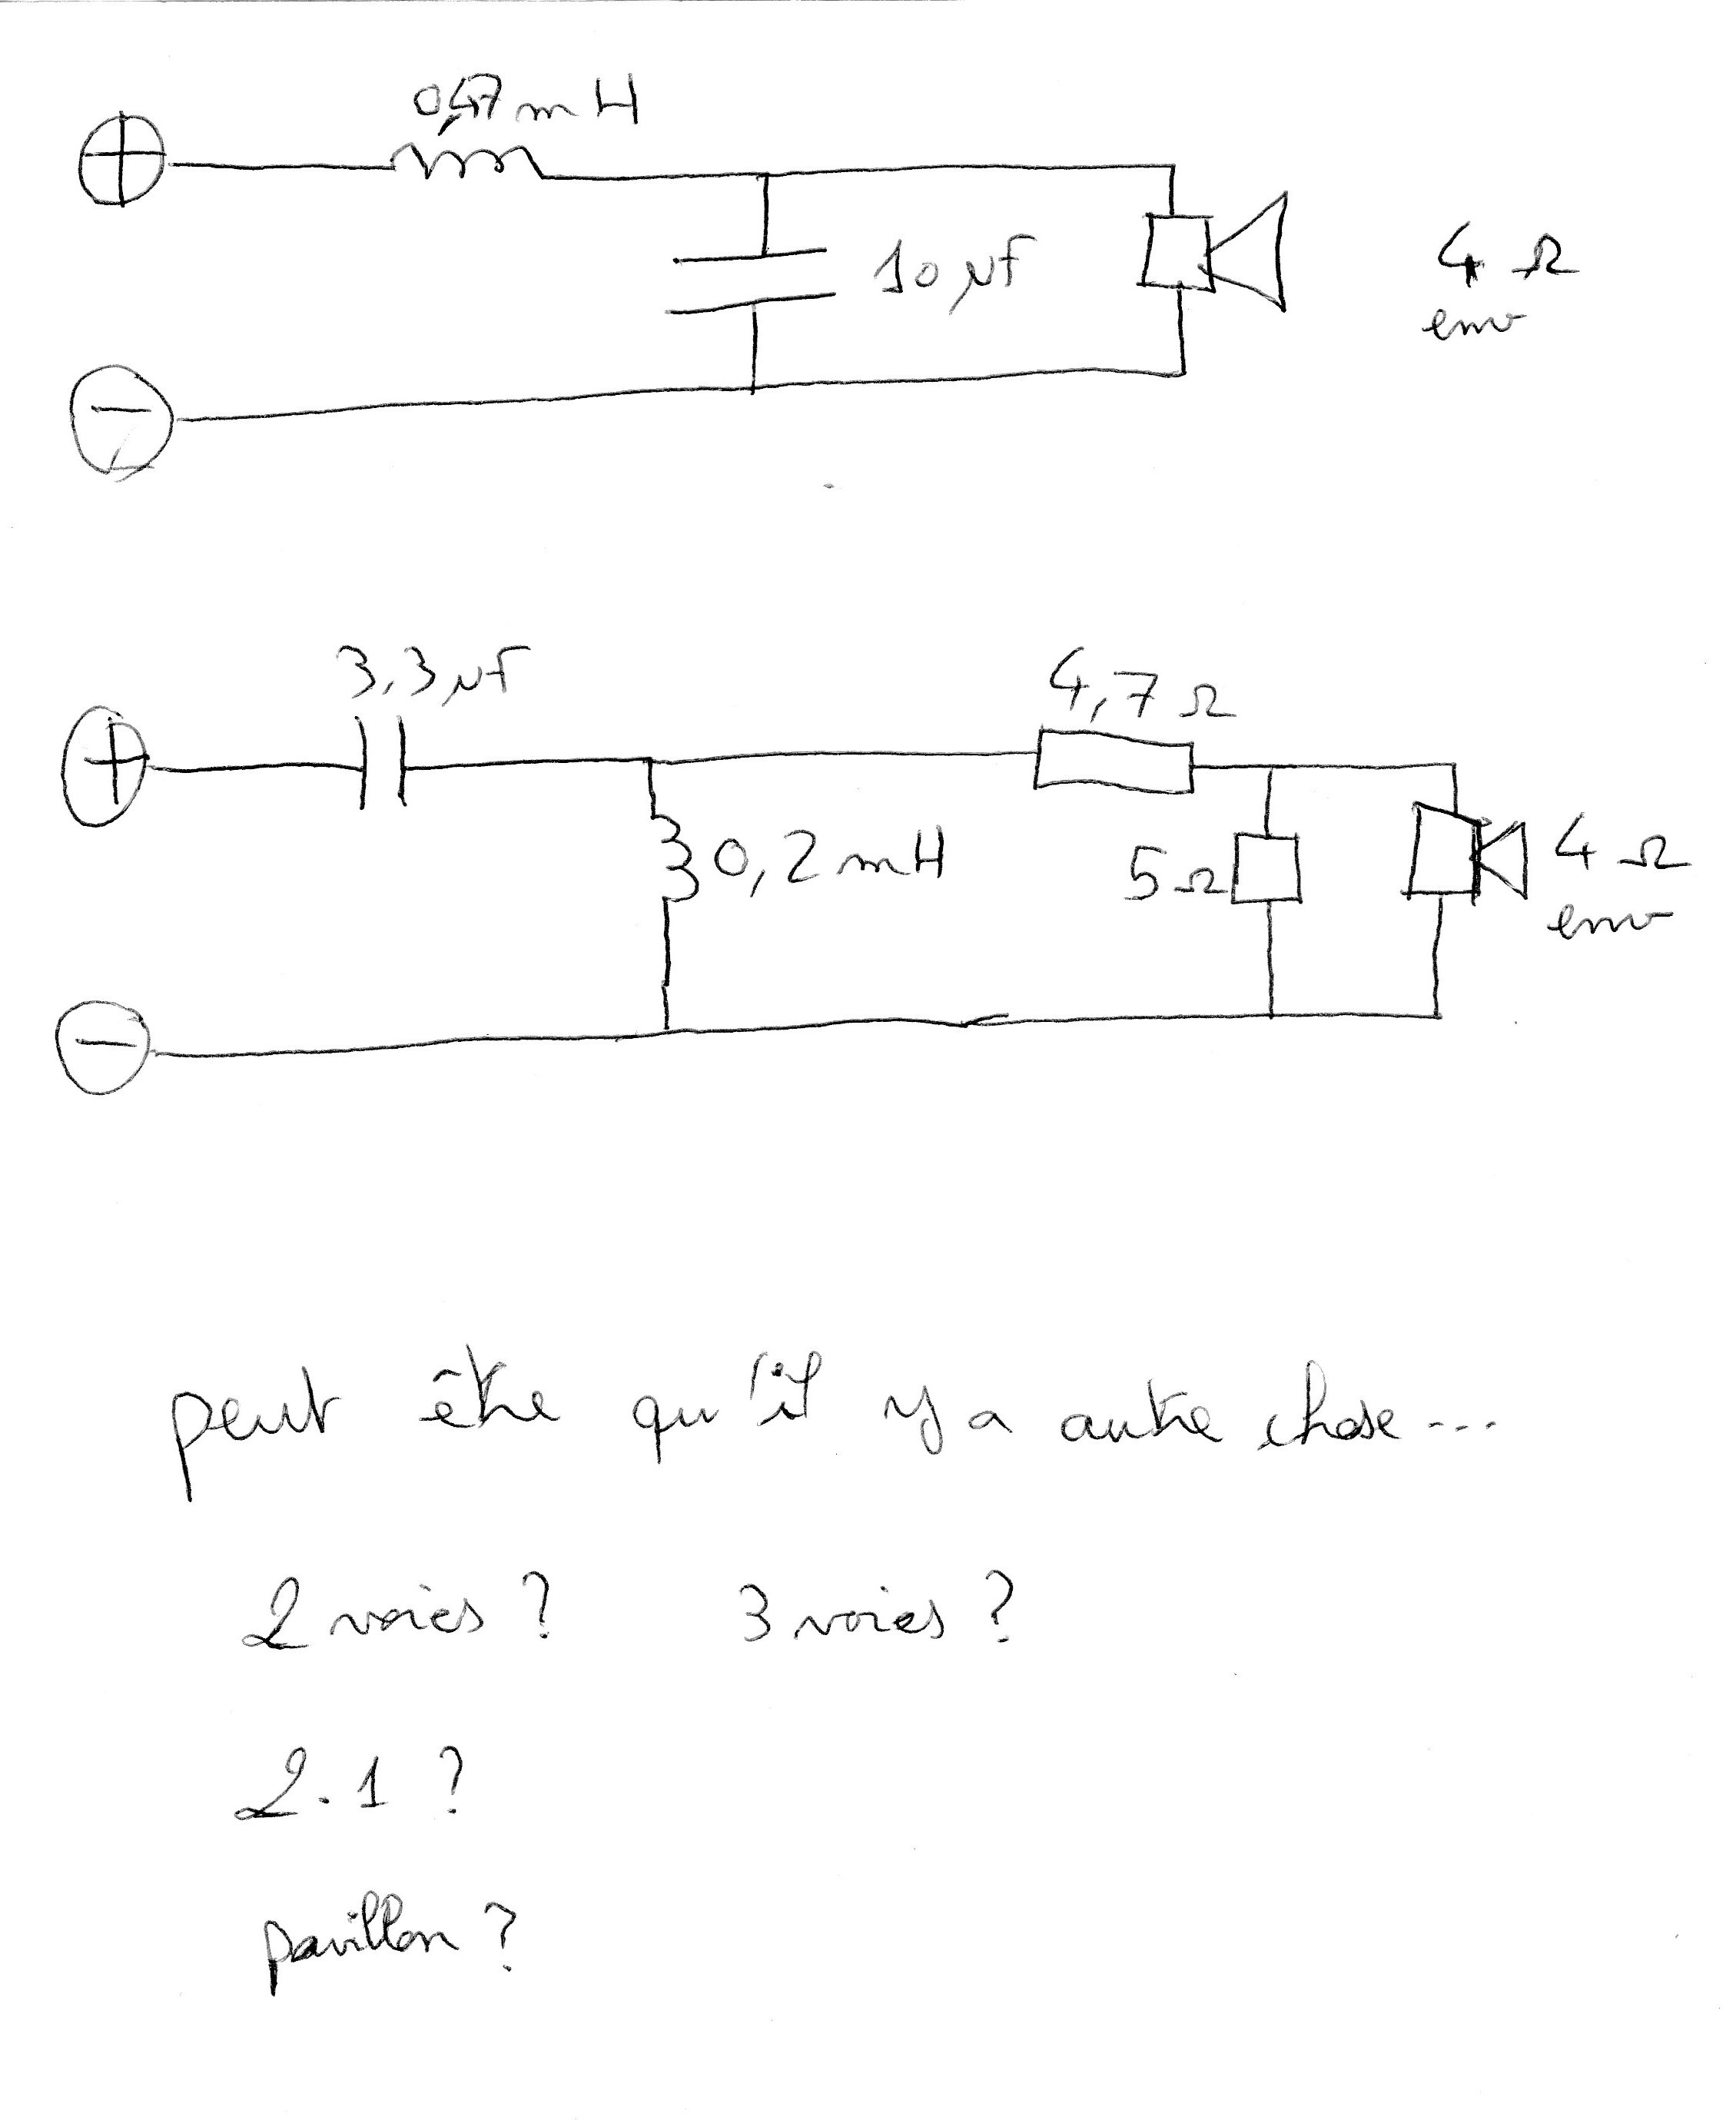 0,47 mH
10 µf
4 Ω
env
3,3 µf
4,7 Ω
0,2 mH
5 Ω
4 Ω
env
peut être qu'il y a autre chose...
2 voies ? 3 voies ?
2.1 ?
pavillon ?